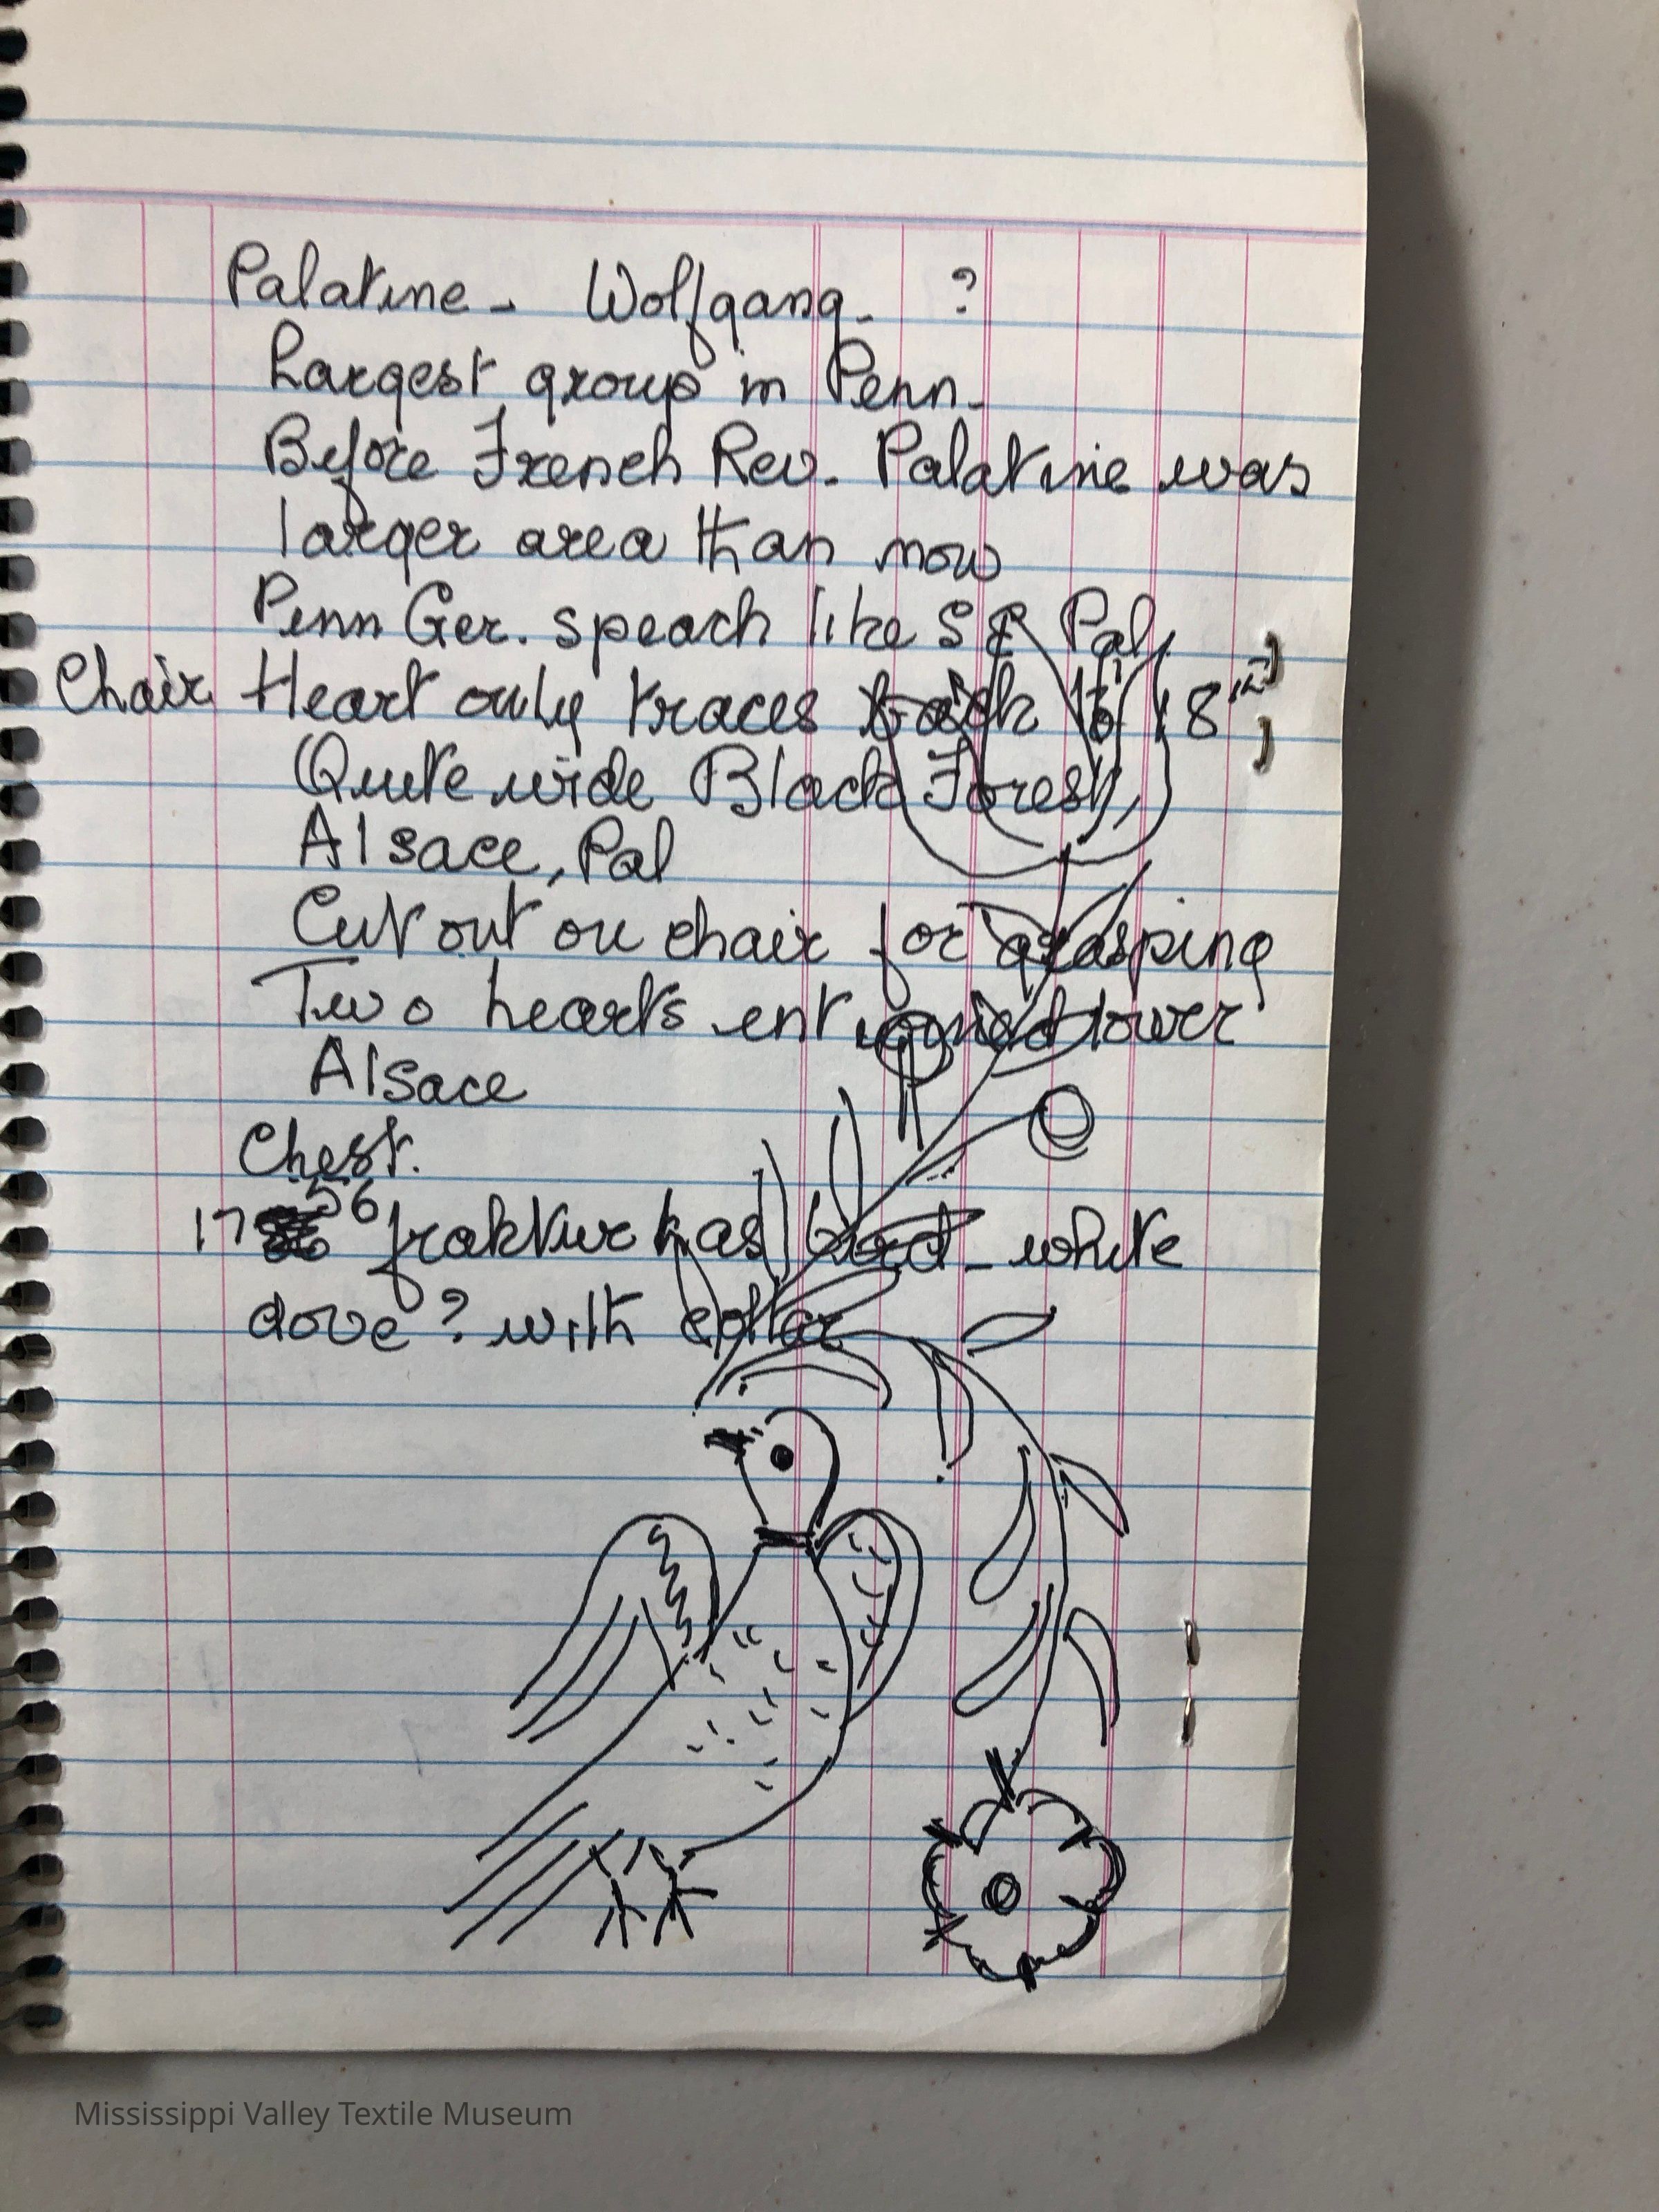 Palatine - Wolfgang - ?
Largest group in Penn -
Before French Rev. Palatine was
larger area than now
Penn Ger. speach like SE Pal.
Chair Heart only traces back to 18th
Quite wide Black Forest,
Alsace, Pal
Cut out on chair for grasping
Two hearts ent lower
Alsace
Chest.
1756 fraktur has bird - white
dove? with collar
Mississippi Valley Textile Museum